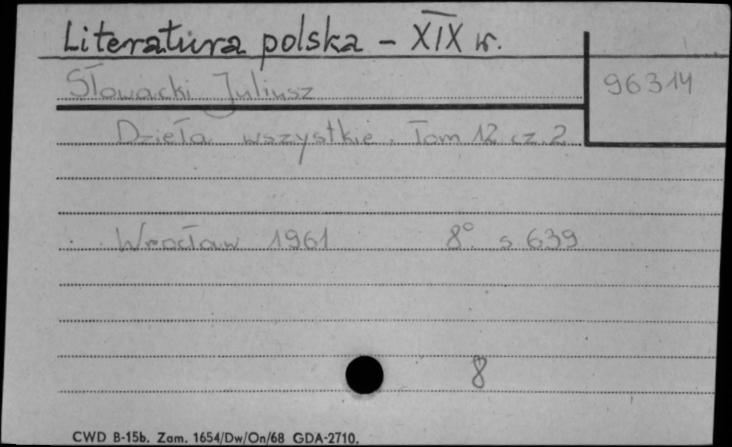 Literatura polska - XIX w.
Słowacki Juliusz
96314
Dzieła wszystkie. Tom 12 cz. 2
Wrocław 1961 8° s 639
8
CWD B-15b. Zam. 1654/Dw/On/68 GDA-2710.